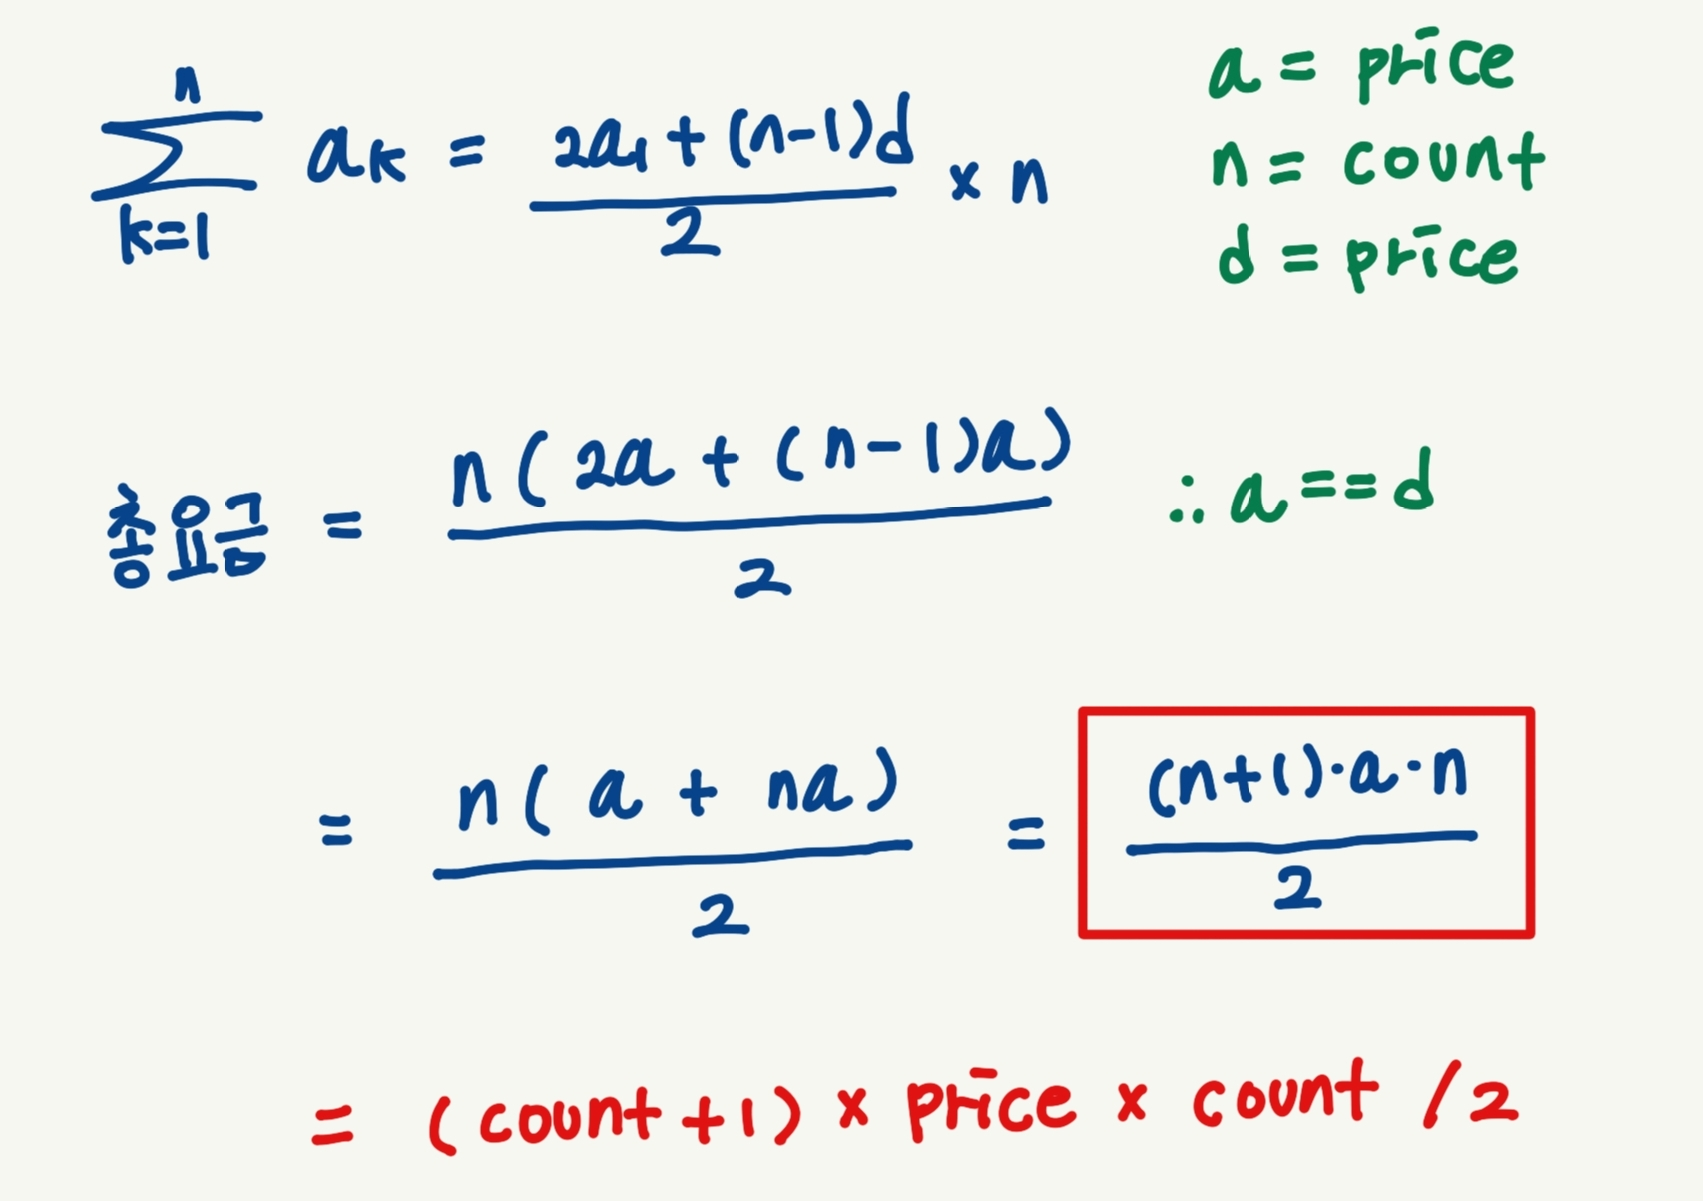 n
∑ aₖ = 2a₁ + (n-1)d / 2 × n
k=1
a = price
n = count
d = price
총요금 = n(2a + (n-1)a) / 2
∴ a == d
= n(a + na) / 2 = (n+1)·a·n / 2
= (count+1) × price × count /2